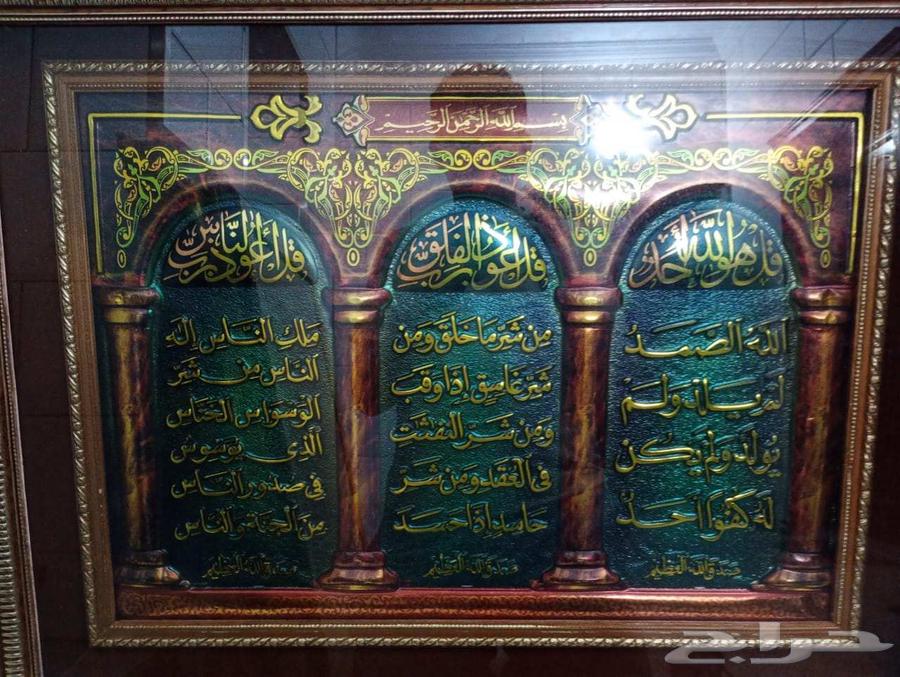 بسم الله الرحمن الرحيم
قل هو الله أحد
الله الصمد
لم يلد ولم
يولد ولم يكن
له كفوا أحد
صدق الله العظيم
قل أعوذ برب الفلق
من شر ما خلق ومن
شر غاسق إذا وقب
ومن شر النفثت
في العقد ومن شر
حاسد إذا حسد
صدق الله العظيم
قل أعوذ برب الناس
ملك الناس إله
الناس من شر
الوسواس الخناس
الذي يوسوس
في صدور الناس
من الجنة و الناس
صدق الله العظيم
حراج